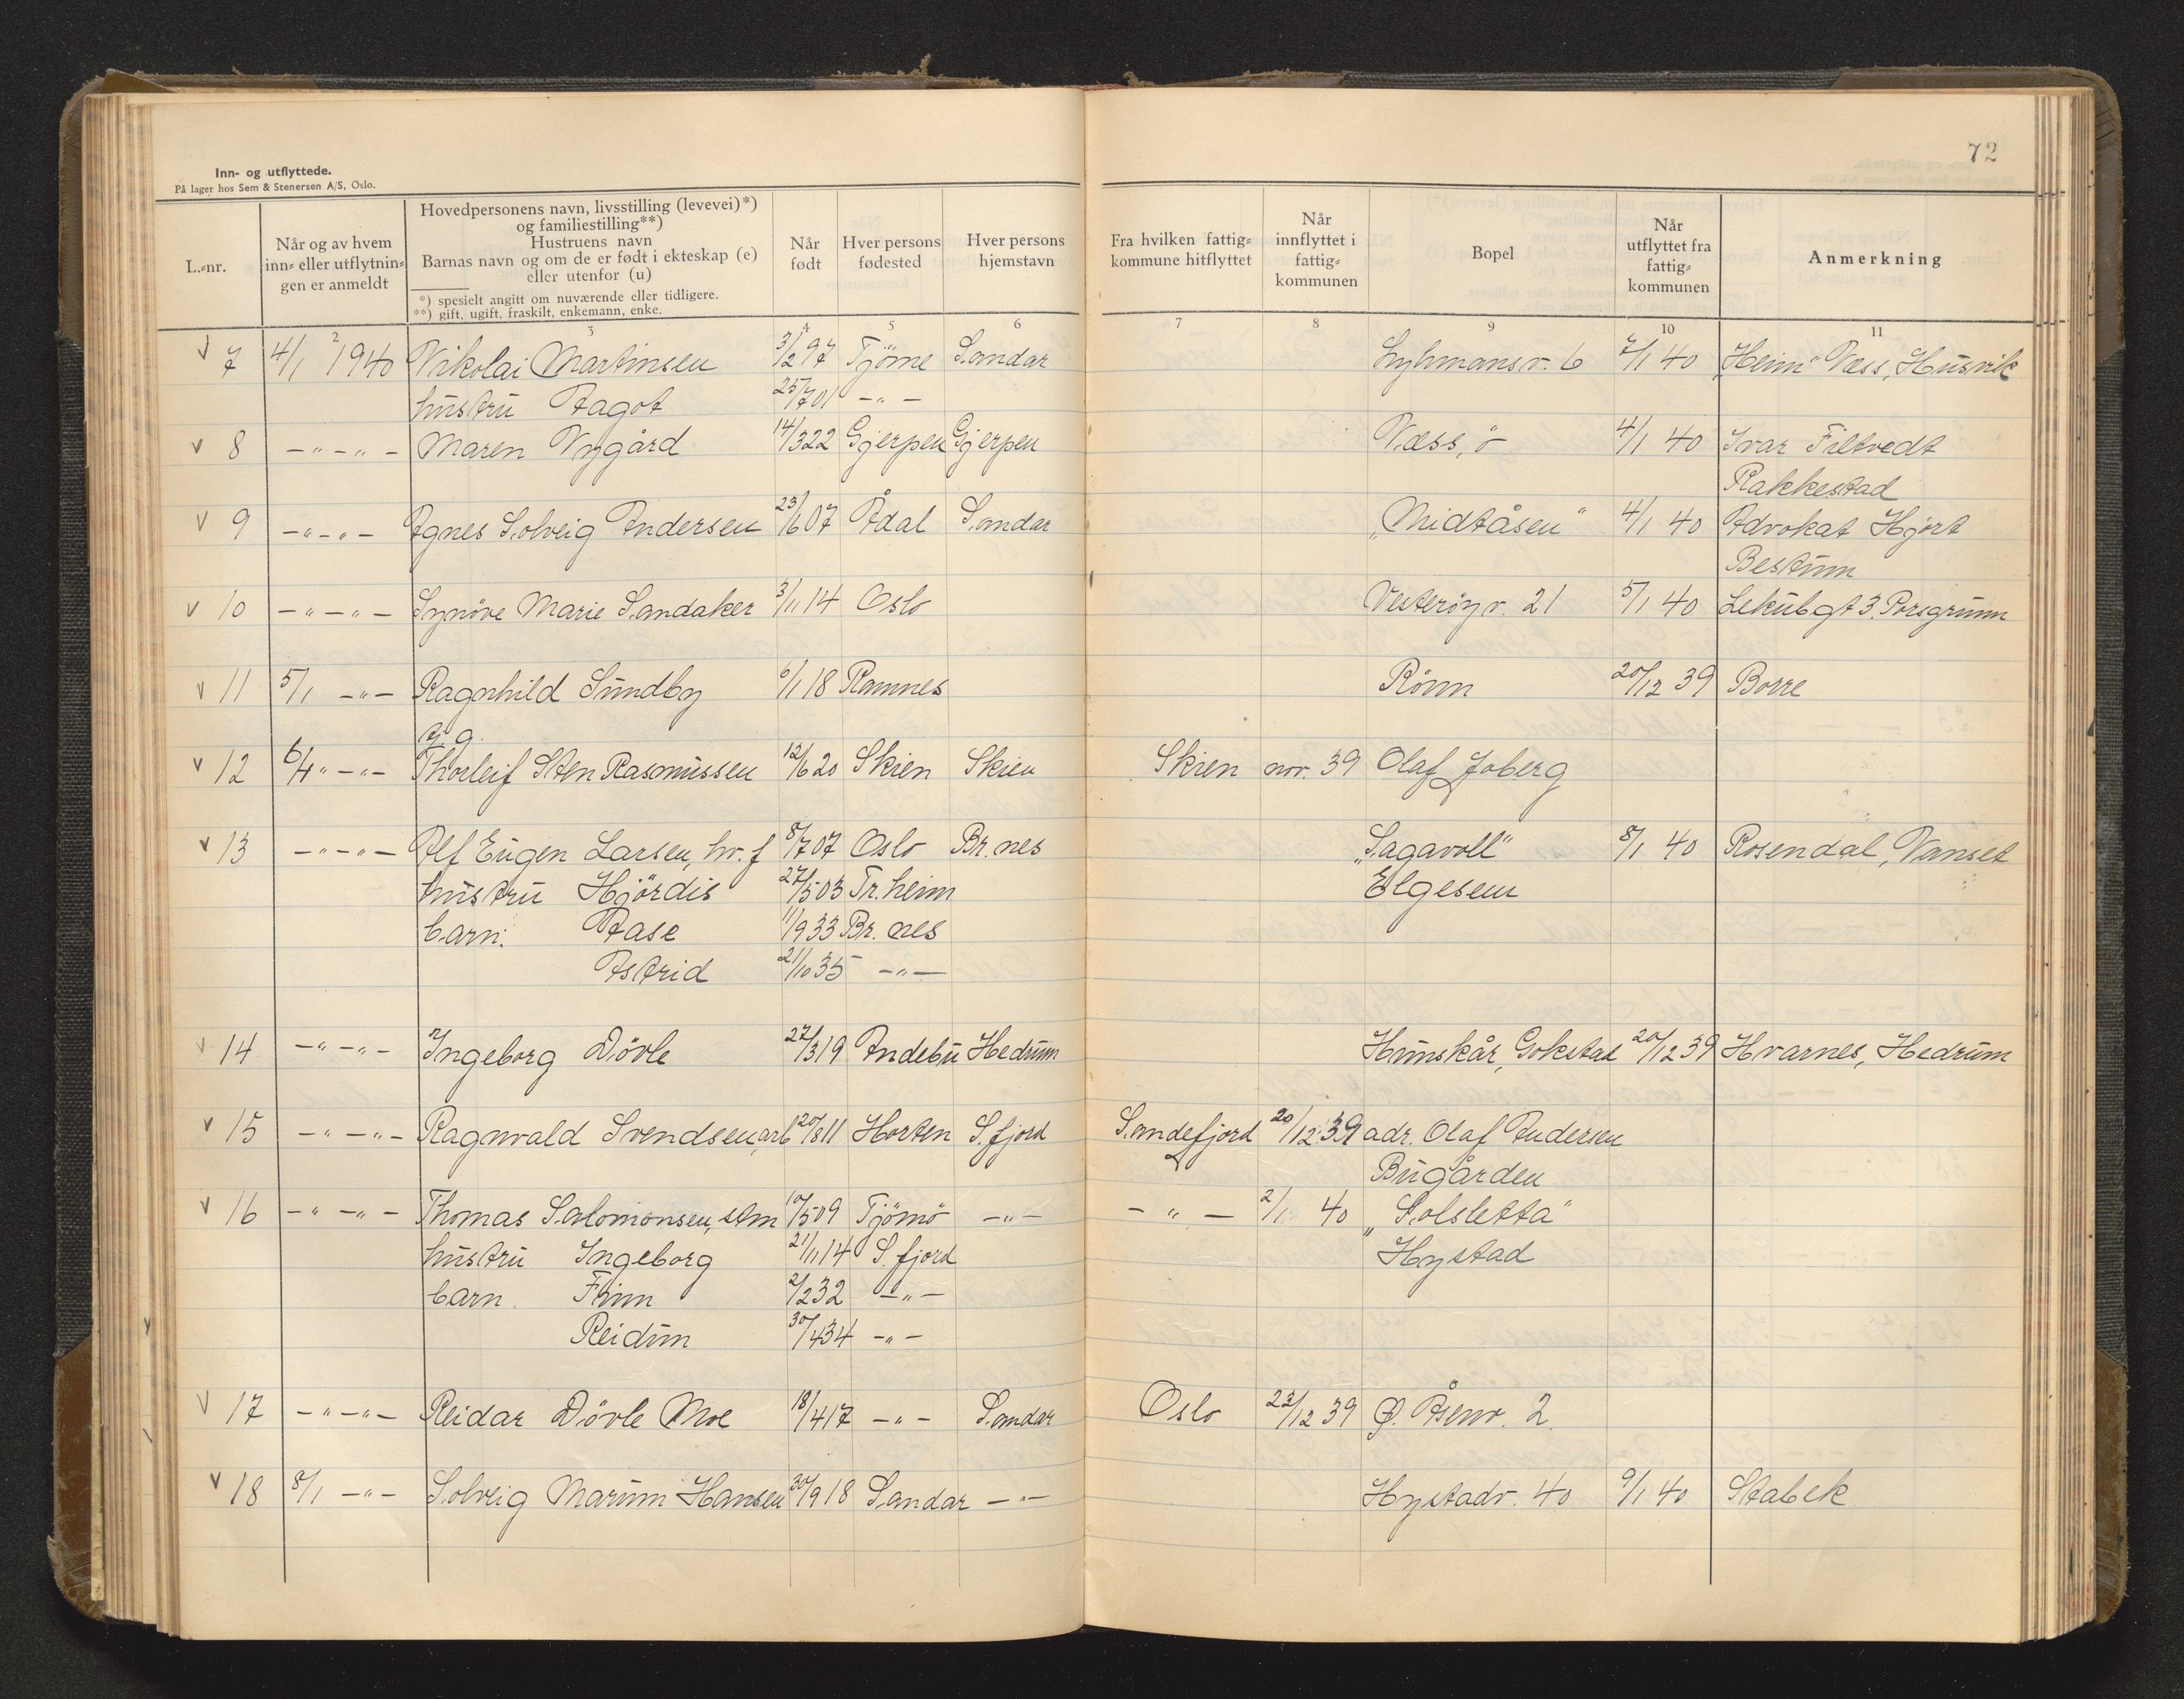 72
Inn- og utflyttede.
På lager hos Sem & Stenersen A/S, Oslo.
L.-nr.
Når og av hvem inn- eller utflytningen er anmeldt
Hovedpersonens navn, livsstilling (levevei)*) og familiestilling**)
Hustruens navn
Barnas navn og om de er født i ekteskap (e) eller utenfor (u)
*) spesielt angitt om nuværende eller tidligere.
**) gift, ugift, fraskilt, enkemann, enke.
Når født
Hver persons fødested
Hver persons hjemstavn
Fra hvilken fattigkommune hitflyttet
Når innflyttet i fattigkommunen
Bopel
Når utflyttet fra fattigkommunen
Anmerkning
2 3 4 5 6 7 8 9 10 11
v 7 4/1 1940 Nikolai Martinsen 3/2 97 Tjöme Sandar Lyhmansv. 6 7/1 40 „Heim" Væss, Husvik
hustru Aagot 25/7 01 -"-
v 8 -"-"- Maren Nygård 14/3 22 Gjerpen Gjerpen Væss, ö 4/1 40 Ivar Filtvedt
Rakkestad
v 9 -"-"- Agnes Solveig Andersen 23/6 07 Ådal Sandar „Midtåsen" 4/1 40 Advokat Hjort
Bestum
v 10 -"-"- Synöve Marie Sandaker 3/11 14 Oslo Vesteröyv. 21 5/1 40 Lekubgt 3. Porsgrunn
v 11 5/1 -"- Ragnhild Sundby 6/1 18 Ramnes Römm 20/12 39 Borre
g.g.
v 12 6/4 " -"- Thorleif Sten Rasmussen 12/6 20 Skien Skien Skien nov. 39 Olaf Joberg
v 13 -"-"- Alf Eugen Larsen, hv. f 8/7 07 Oslo Br.nes „Sagavoll" 8/1 40 Rosendal, Vanset
hustru Hjördis 27/5 03 Tr.heim Elgesem
barn: Aase 11/9 33 Br. nes
Astrid 21/10 35 -"-
v 14 -"-"- Ingeborg Dövle 27/3 19 Andebu Hedrum Hunskår, Gokstad 20/12 39 Hvarnes, Hedrum
v 15 -"-"- Ragnvald Svendsen, arb 20/8 11 Horten S.fjord Sandefjord 20/12 39 adr. Olaf Andersen
Bugården
v 16 -"-"- Thomas Salomonsen, stm 10/5 09 Tjömö -"- -"- 2/1 40 „Solsletta"
hustru Ingeborg 21/11 14 S.fjord Hystad
barn Finn 2/2 32 -"-
Reidun 30/4 34 -"-
v 17 -"-"- Reidar Dövle Moe 18/4 17 -"- Sandar Oslo 22/12 39 Ø. Åsenv. 2.
v 18 8/1 -"- Solveig Marum Hansen 30/9 18 Sandar -"- Hystadv. 40 9/1 40 Stabek